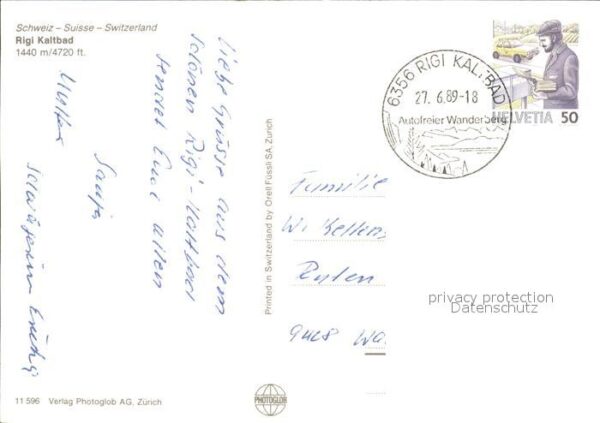 Schweiz – Suisse – Switzerland
Rigi Kaltbad
1440 m/4720 ft.
Liebe Grüsse aus dem
schönen Rigi-Kaltbad
sendet Euch allen
Sonja
6356 RIGI KALTBAD
27. 6.89-18
Autofreier Wanderberg
HELVETIA 50
Familie
W. Kellen
9428 Wa
privacy protection
Datenschutz
Printed in Switzerland by Orell Füssli SA, Zürich
11 596 Verlag Photoglob AG, Zürich
PHOTOGLOB